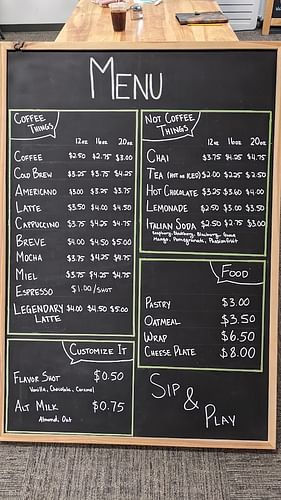 MENU
COFFEE THINGS
12oz 16oz 20oz
COFFEE $2.50 $2.75 $3.00
COLD BREW $3.25 $3.75 $4.25
AMERICANO $3.00 $3.25 $3.75
LATTE $3.50 $4.00 $4.50
CAPPUCCINO $3.75 $4.25 $4.75
BREVE $4.00 $4.50 $5.00
MOCHA $3.75 $4.25 $4.75
MIEL $3.75 $4.25 $4.75
ESPRESSO $1.00/SHOT
LEGENDARY LATTE $4.00 $4.50 $5.00
CUSTOMIZE IT
FLAVOR SHOT $0.50
Vanilla, Chocolate, Caramel
ALT MILK $0.75
Almond, Oat
NOT COFFEE THINGS
12oz 16oz 20oz
CHAI $3.75 $4.25 $4.75
TEA (HOT OR ICED) $2.00 $2.25 $2.50
HOT CHOCOLATE $3.25 $3.60 $4.00
LEMONADE $2.50 $3.00 $3.50
ITALIAN SODA $2.50 $2.75 $3.00
Raspberry, Blackberry, Blueberry, Guava
Mango, Pomegranate, Passionfruit
FOOD
PASTRY $3.00
OATMEAL $3.50
WRAP $6.50
CHEESE PLATE $8.00
SIP
&
PLAY